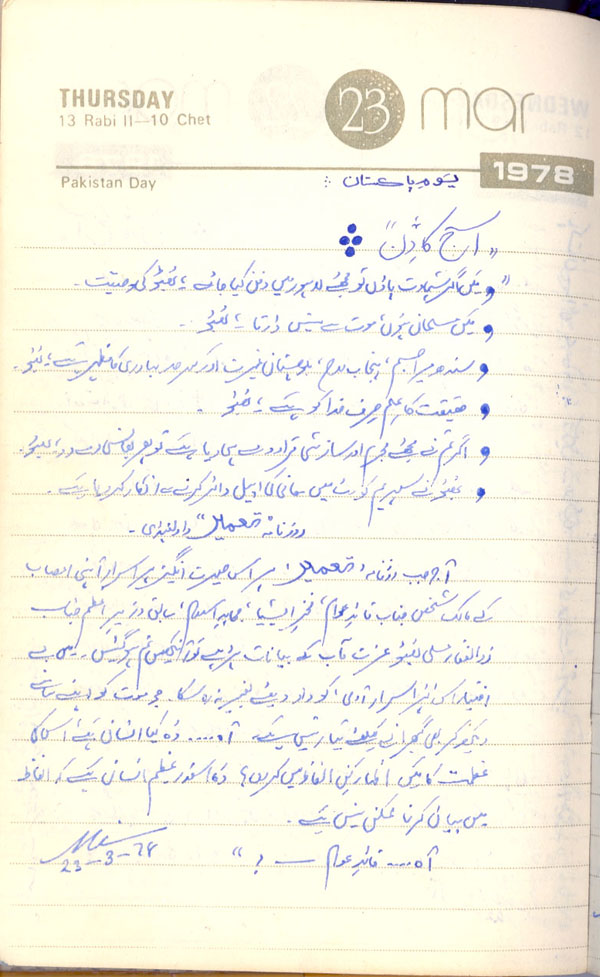 THURSDAY
13 Rabi II—10 Chet
23 mar
1978
Pakistan Day
یوم پاکستان :
" آج کا دن "
" میں اگر شہادت پاؤں تو مجھے لاہور میں دفن کیا جائے، بھٹو کی وصیت ۔
میں مسلمان ہوں، موت سے نہیں ڈرتا، بھٹو ۔
سندھ میرا جسم، پنجاب روح، بلوچستان غیرت اور سرحد بہادری کا مظہر ہے، بھٹو ۔
حقیقت کا علم صرف خدا کو ہے، بھٹو ۔
اگر تم نے مجھے مجرم اور سازشی قرار دے ہی دیا ہے تو پھر پھانسی دے دو، بھٹو ۔
بھٹو نے سپریم کورٹ میں معافی کی اپیل دائر کرنے سے انکار کر دیا ہے ۔
روزنامہ "تعمیل" راولپنڈی ۔
آج جب روزنامہ "تعمیل" پر اس حیرت انگیز پر اسرار آہنی اعصاب
کے مالک شخص جناب قائد عوام، فخر ایشیا، سابق وزیر اعظم جناب
ذوالفقار علی بھٹو عزت مآب کے بیانات پڑھے تو آنکھیں نم ہو گئیں ۔ میں بے
اختیار اس پر اسرار آدمی کو داد دیئے بغیر نہ رہ سکا ۔ جو موت کو اپنے سامنے
دیکھ کر بھی گھبرانے کیلئے تیار نہیں ہے ۔ آہ .... وہ کیا انسان ہے، اس کی
عظمت کا میں اظہار کن الفاظ میں کروں؟ وہ اسقدر عظیم انسان ہے کہ الفاظ
میں بیان کرنا ممکن نہیں ہے ۔
آہ .... قائد عوام — ؟ "
23-3-78